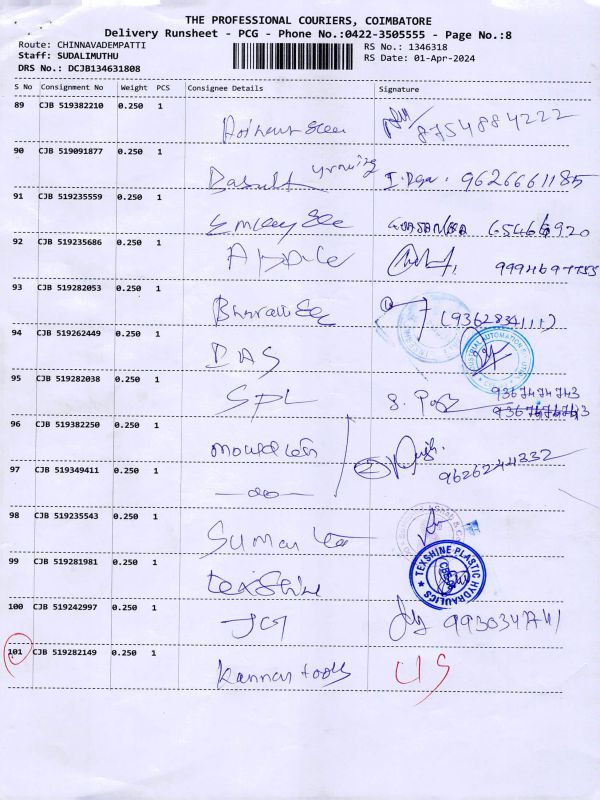 THE PROFESSIONAL COURIERS, COIMBATORE
Delivery Runsheet - PCG - Phone No.:0422-3505555 - Page No.:8
Route: CHINNAVADEMPATTI RS No.: 1346318
Staff: SUDALIMUTHU RS Date: 01-Apr-2024
DRS No.: DCJB134631808
S No Consignment No Weight PCS Consignee Details Signature
89 CJB 519382210 0.250 1
8754884222
90 CJB 519091877 0.250 1
9626661185
91 CJB 519235559 0.250 1
92 CJB 519235686 0.250 1
93 CJB 519282053 0.250 1
(9362834111)
94 CJB 519262449 0.250 1
DAS
95 CJB 519282038 0.250 1
SPL 9367474743
96 CJB 519382250 0.250 1
97 CJB 519349411 0.250 1
9626244332
-do-
98 CJB 519235543 0.250 1
Suman
99 CJB 519281981 0.250 1
TEXSHINE PLASTIC HYDRAULICS CBE
texshine
100 CJB 519242997 0.250 1
JGT
101 CJB 519282149 0.250 1
Kannan tools US